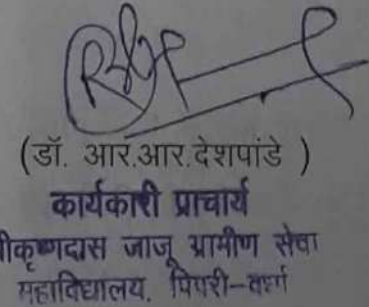 (डॉ. आर.आर.देशपांडे )
कार्यकारी प्राचार्य
जाजू ग्रामीण सेवा
महाविद्यालय, पिपरी-वर्धा